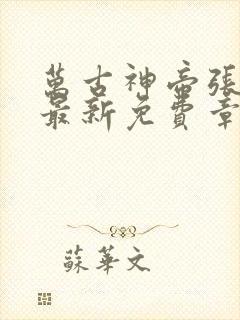 萬古神帝張
最新免費章
蘇華文